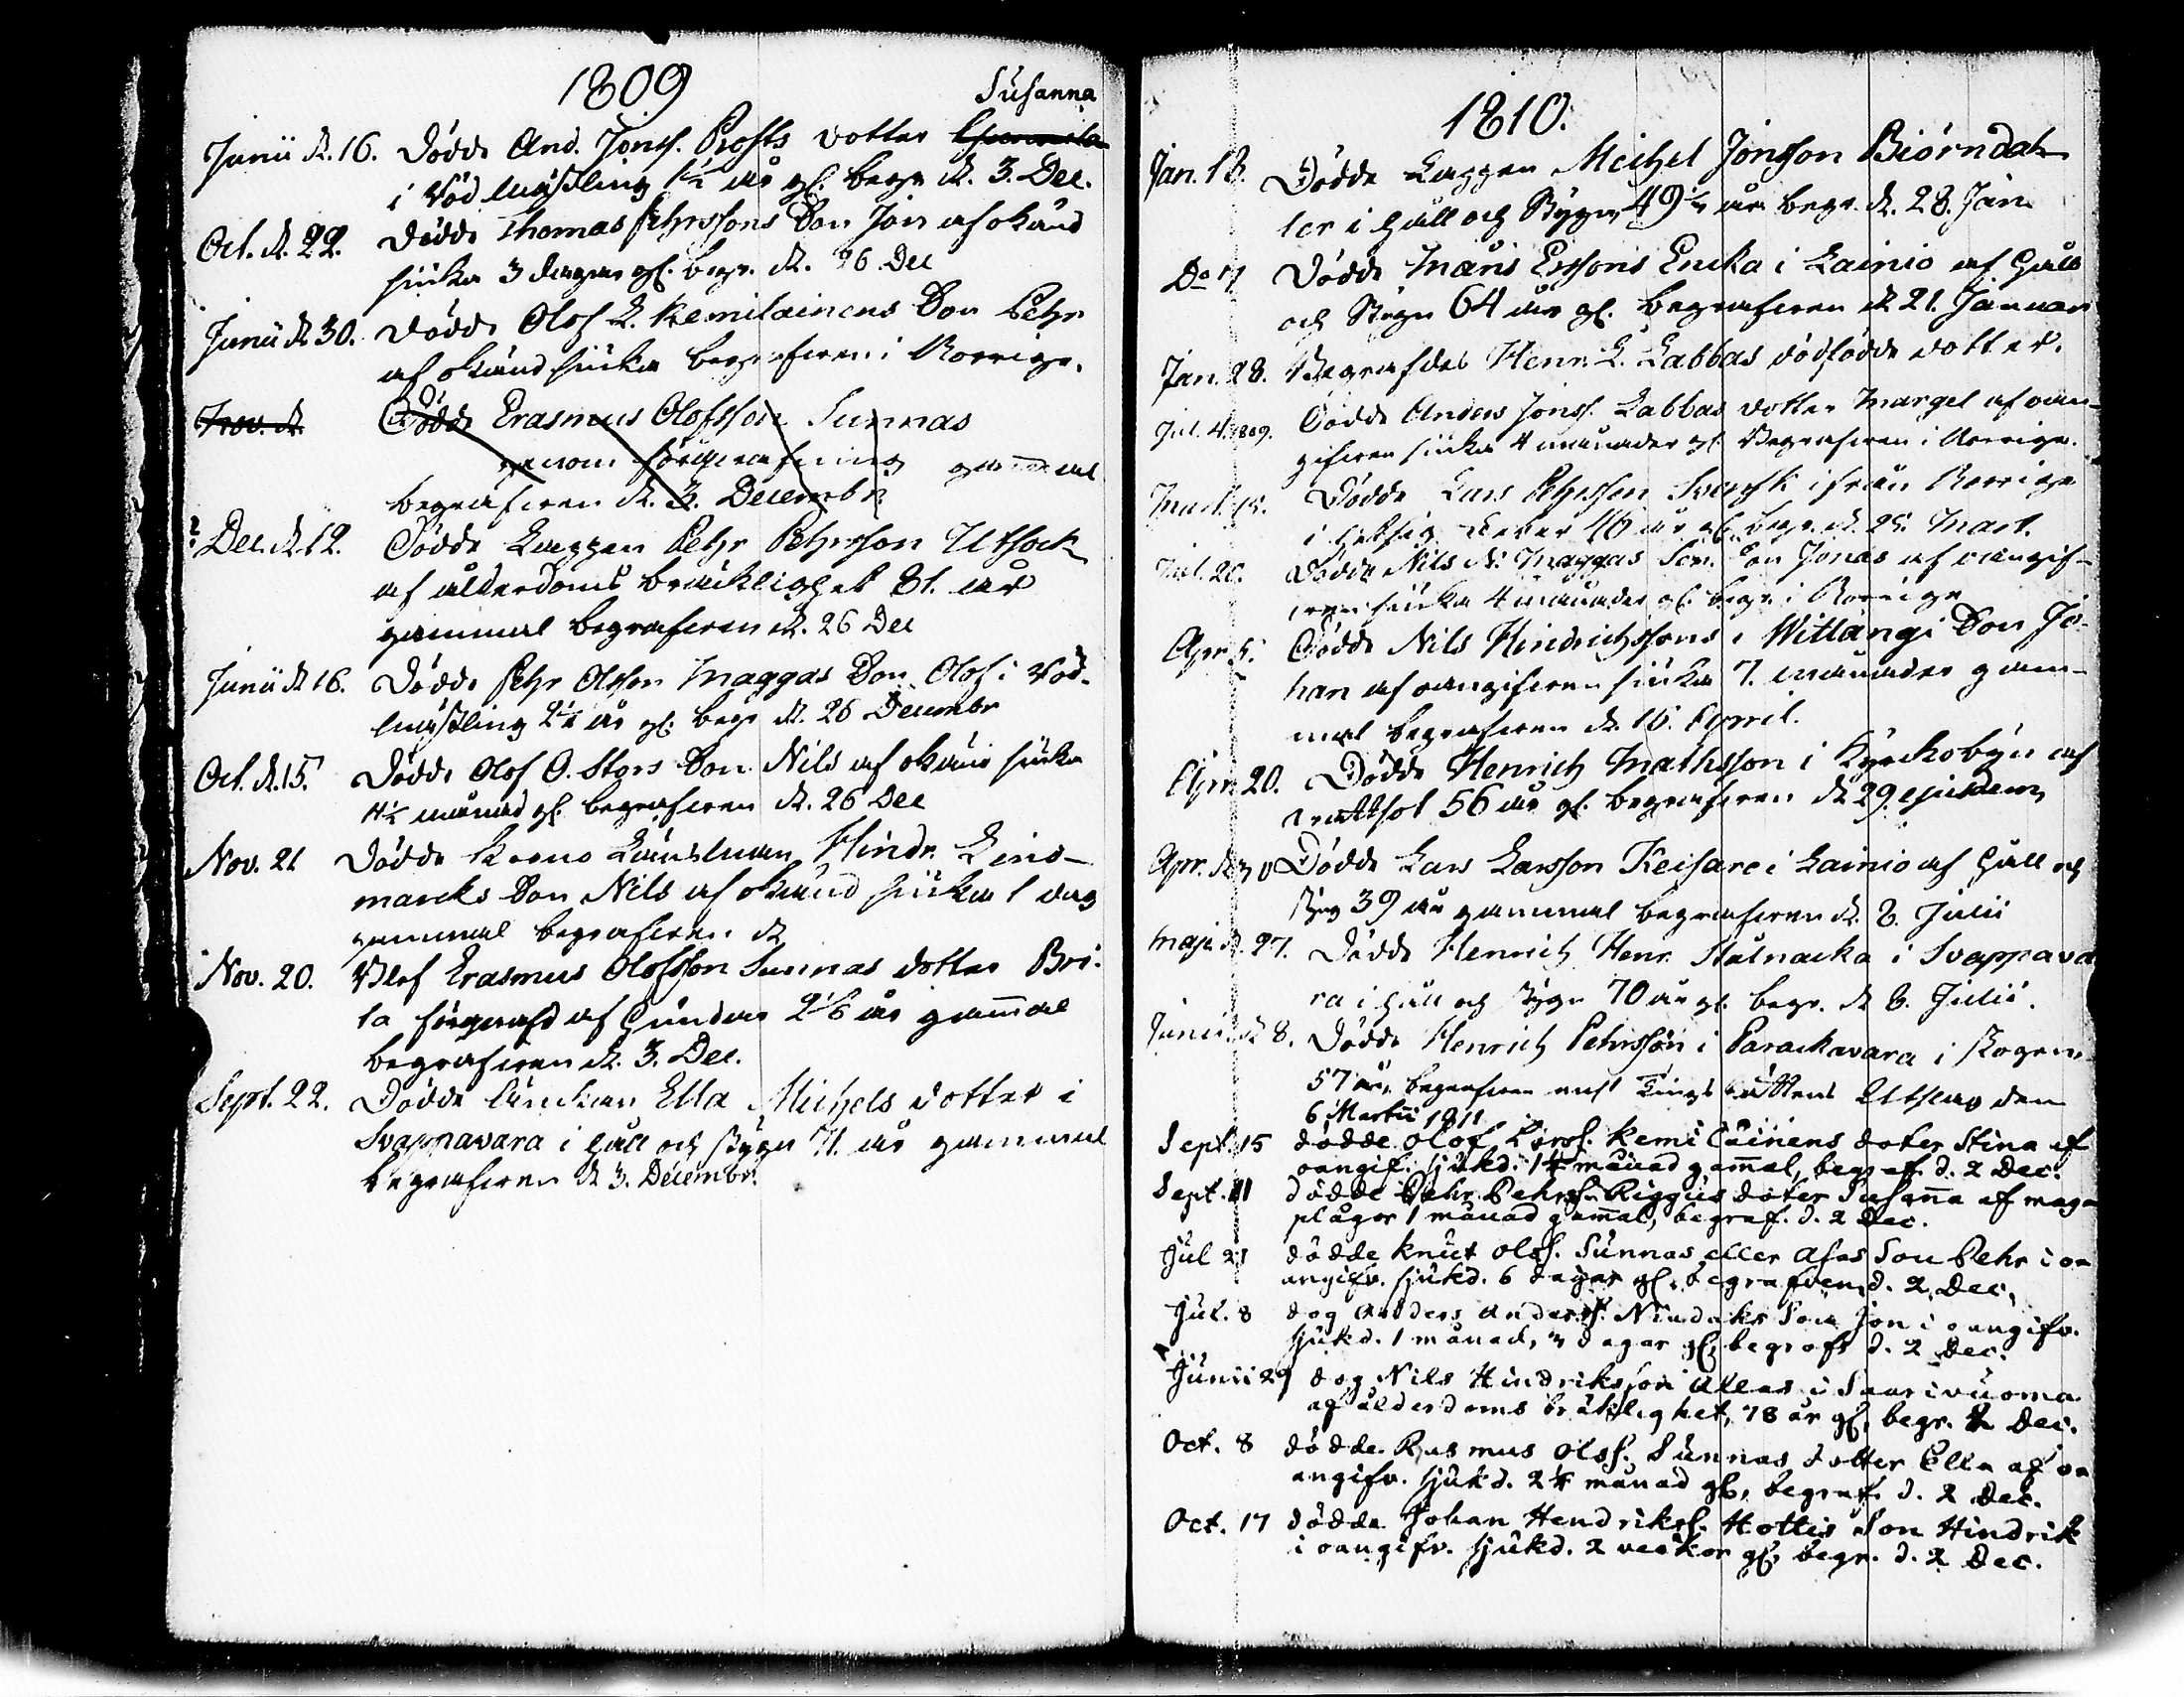 1809
Susanna
Junii d. 16. Dödde And. Jonss. Prosts dotter
i röd mässling 1½ år gl. begr d. 3. Dec.
Oct. d. 22. Dödde Thomas Pehrssons Son Jon af okänd
siuka 3 dagar gl. begr. d. 26 Dec
Junii d. 30. Dödde Olof L. Kemilainens Son Pehr
af okänd siuka begrafven i Norrige.
Nov. d. Dödde Erasmus Olofsson Sunnas
genom gammal
begrafven d. 3. Decembr
Dec. d. 12. Dödde Lappen Pehr Pehrsson Utsock
af ålderdoms bräcklighet 81. år
gammal begrafven d. 26 Dec
Junii d. 16. Dödde Pehr Olsson Maggas Son Olof i röd-
mässling 2½ år gl. begr d. 26 Decembr
Oct. d. 15. Dödde Olof O. Stors Son Nils af okänd siuka
månad gl. begrafven d. 26 Dec
Nov. 21 Dödde Länsman Hindr. Lind-
marcks Son Nils af okänd siuka 1 dag
gammal begrafven d.
Nov. 20. Blef Erasmus Olofsson Sunnas dotter Bri-
ta af hundar 2 1/6 år gam̄al
begrafven d. 3. Dec.
Sept. 22. Dödde änckan Ella Michels dotter i
Svappavara i håll och stygn 71. år gammal
begrafven d 3. Decembr.
1810.
Jan. 13. Dödde Lappen Meichel Jonsson Biörndah-
ler i håll och Stygn, 49½ år begr. d. 28. Jan
Do 17 Dödde Måns Erssons Encka i Lainio af håll
och Stygn 64 år gl. begrafven d 21. Januari
Jan. 28. Begrafdes Henr. L. Labbas dödfödde dotter.
Jul. 4. 1809. Dödde Anders Jonss. Labbas dotter Marget af oan-
gifven siuka 4 månader gl. Begrafven i Norrige.
Mart. 15. Dödde Lars Pehrsson Svensk ifrån Norrige
i hetsig Feber 46 år gl. begr. d. 25. Mart.
Jul. 20. Dödde Nils N: Maggas Son Jonas af oangif-
ven siuka 4 månader gl. begr. i Norrige
Apr. 5. Dödde Nils Hindrichssons i Wittangi Son Jo-
han af oangifven siuka 7. månader gam-
mal begrafven d. 15. April.
Apr. 20. Dödde Henrich Mathsson i Kyrckobyn af
56 år gl. begrafven d 29. ejusdem,
Apr. d. 30 Dödde Lars Larsson Keisare i Lainio af håll och
styg 39 år gammal begrafven d. 8. Julii
Maji d. 27. Dödde Henrich Henr. Stålnacka i Svappava
ra i håll och stygn 70 år gl. begr. d 8. Julii.
Junii d 8. Dödde Henrich Pehrsson i Parackavara i skogen
57 år, begrafven enl Tings Rättens Utslag den
6 Martii 1811
Sept. 15 dödde Olof Larss. Kemiläinens doter Stina af
oangif. sjukd. 1¼ månad gam̄al, begraf. d. 2 Dec.
Sept. 11 dödde Pehr Pehrs. Riggus doter Susan̄a af mag-
plågor 1 månad gam̄al, begraf. d. 2 Dec.
Jul 21 dödde Knut Olss. Sunnas eller Asas Son Pehr i oa
angifv. sjukd. 6 dagar gl. begrafven d. 2. Dec.
Jul. 8 dog Anders Anderss. Nindaks Son Jon i oangifv.
sjukd. 1 månad, 3 dagar gl, begraft d. 2 Dec.
Junii 29 dog Nils Hindriksson Allas i Saarivuoma
af ålderdoms bräklighet, 78 år gl, begr. 2 Dec.
Oct. 8 dödde Rasmus Olss. Sunnas dotter Ella af oa
angifv. sjukd. 2¼ månad gl, begraf. d. 2 Dec.
Oct. 17 dödde Johan Hendrikss. Hottis Son Hindrik
i oangifv. sjukd. 2 veckor gl, begr. d. 2 Dec.